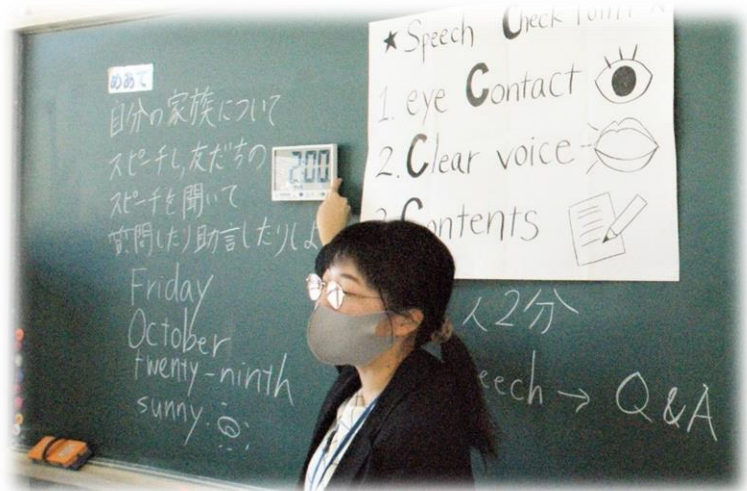 めあて
自分の家族について
スピーチし,友だちの
スピーチを聞いて
質問したり助言したりしよ
Friday
October
twenty-ninth
sunny.
2:00
★Speech Check Point
1. eye Contact
2. Clear voice
Contents
人2分
eech → Q&A